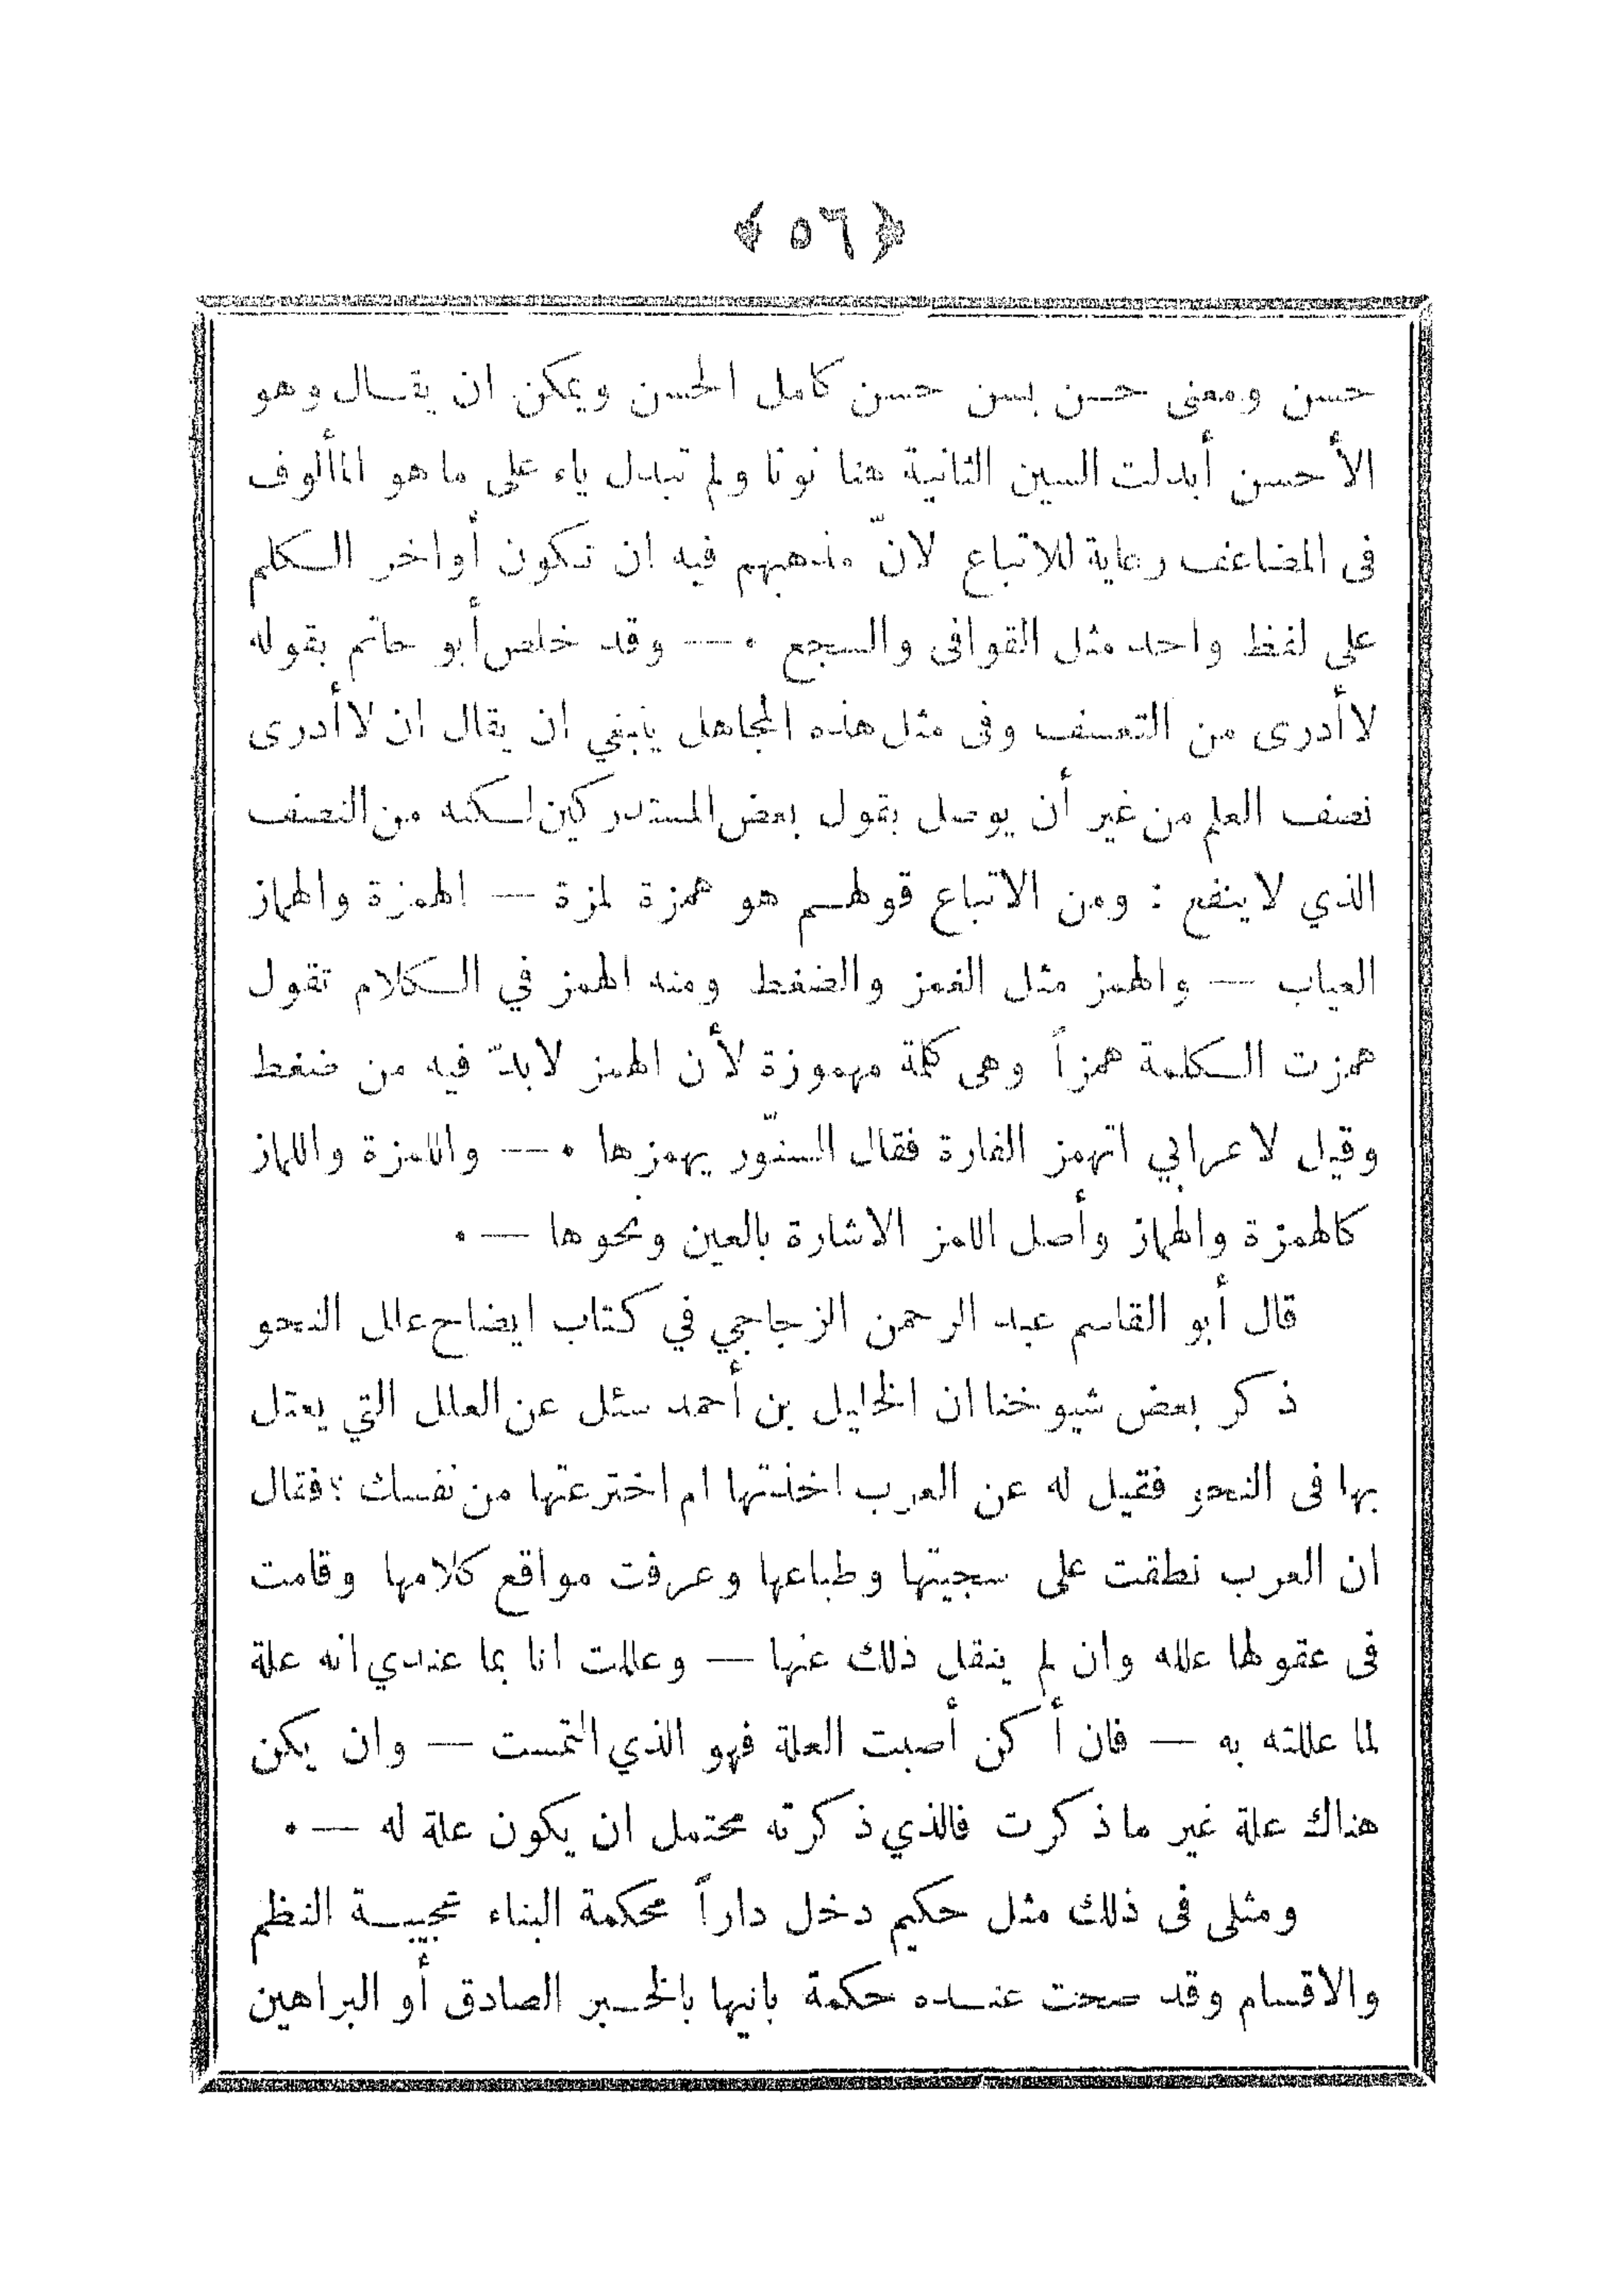 ﴿ ٥٦ ﴾
حسن ومعنى حسن بسن حسن كامل الحسن ويمكن ان يقال وهو
الأحسن أبدلت السين الثانية هنا نونا ولم تبدل ياء على ما هو المألوف
فى المضاعف رعاية للاتباع لانّ مذهبهم فيه ان تكون أواخر الكلم
على لفظ واحد مثل القوافى والسجع ٠— وقد خلص أبو حاتم بقوله
لا أدرى من التعسف وفى مثل هذه المجاهل ينبغي ان يقال ان لا أدرى
نصف العلم من غير أن يوصل بقول بعض المستدركين لكنه من النصف
الذي لا ينفع : ومن الاتباع قولهم هو همزة لمزة — الهمزة والهماز
العياب — والهمز مثل الغمز والضغط ومنه الهمز في الكلام تقول
همزت الكلمة همزاً وهى كلمة مهموزة لأن الهمز لابدّ فيه من ضغط
وقيل لاعرابي اتهمز الفارة فقال السنّور يهمزها ٠— واللمزة واللماز
كالهمزة والهماز وأصل اللمز الاشارة بالعين ونحوها —٠
قال أبو القاسم عبد الرحمن الزجاجي في كتاب ايضاح علل النحو
ذكر بعض شيوخنا ان الخليل بن أحمد سئل عن العلل التي يعتل
بها فى النحو فقيل له عن العرب اخذتها ام اخترعتها من نفسك ؟ فقال
ان العرب نطقت على سجيتها وطباعها وعرفت مواقع كلامها وقامت
فى عقولها علله وان لم ينقل ذلك عنها — وعللت انا بما عندي انه علة
لما عللته به — فان أكن أصبت العلة فهو الذي التمست — وان يكن
هناك علة غير ما ذكرت فالذي ذكرته محتمل ان يكون علة له —٠
ومثلى فى ذلك مثل حكيم دخل داراً محكمة البناء عجيبة النظم
والاقسام وقد صحت عنده حكمة بانيها بالخبر الصادق أو البراهين